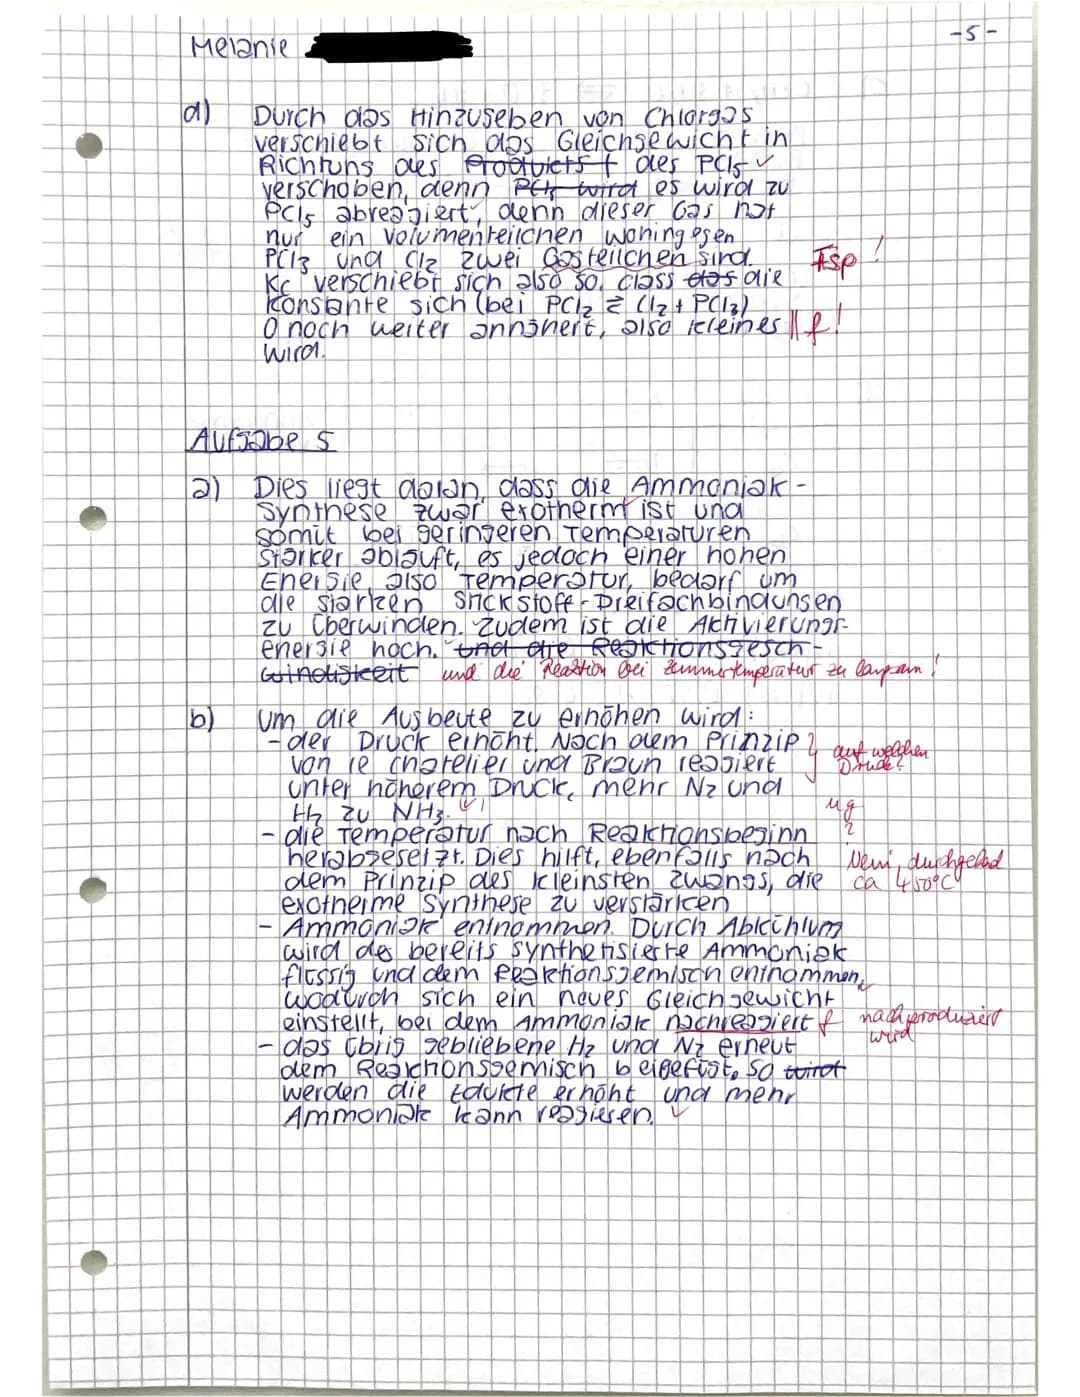 Melanie
-5-
d) Durch das Hinzugeben von Chlorgas
verschiebt sich das Gleichgewicht in
Richtung des Produkts des PCl5 ✓
verschoben, denn PCl5 wird es wird zu
PCl5 abreagiert, denn dieser Gas hat
nur ein Volumenteilchen woningegen
PCl3 und Cl2 zwei Gasteilchen sind. Fsp!
Kc verschiebt sich also so, dass das die
Konstante sich (bei PCl2 ⇌ Cl2 + PCl3)
0 noch weiter annähert, also kleines || f!
wird.
Aufgabe 5
a) Dies liegt daran, dass die Ammoniak-
synthese zwar exotherm ist und
somit bei geringeren Temperaturen
stärker abläuft, es jedoch einer hohen
Energie, also Temperatur, bedarf um
die starken Stickstoff-Dreifachbindungen
zu überwinden. Zudem ist die Aktivierungs-
energie hoch. und die Reaktionsgesch-
windigkeit und die Reaktion bei Zimmertemperatur zu langsam!
b) Um die Ausbeute zu erhöhen wird:
- der Druck erhöht. Nach dem Prinzip } auf welchen
von le chatelier und Braun reagiert Druck?
unter höherem Druck, mehr N2 und
H2 zu NH3. (✓) ug
- die Temperatur nach Reaktionsbeginn ?
herabgesetzt. Dies hilft, ebenfalls nach Nein, durchgehend
dem Prinzip des kleinsten Zwangs, die ca 450°C
exotherme Synthese zu verstärken
- Ammoniak entnommen. Durch Abkühlung
wird das bereits synthetisierte Ammoniak
flüssig und dem Reaktionsgemisch entnommen,
wodurch sich ein neues Gleichgewicht
einstellt, bei dem Ammoniak nachreagiert f nachproduziert
wird
- das übrig gebliebene H2 und N2 erneut
dem Reaktionsgemisch beigefügt, so wird
werden die Edukte erhöht und mehr
Ammoniak kann reagieren. ✓